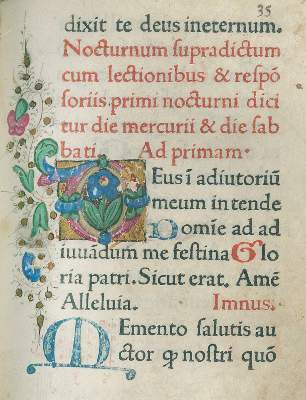 35
dixit te deus ineternum.
Nocturnum supradictum
cum lectionibus & respō
soriis primi nocturni dici
tur die mercurii & die sab
bati. Ad primam.
Deus ī adiutoriū
meum intende
Domīe ad ad
iuuādum me festina Glo
ria patri. Sicut erat. Amē
Alleluia. Imnus.
Memento salutis au
ctor ꝙ nostri quō